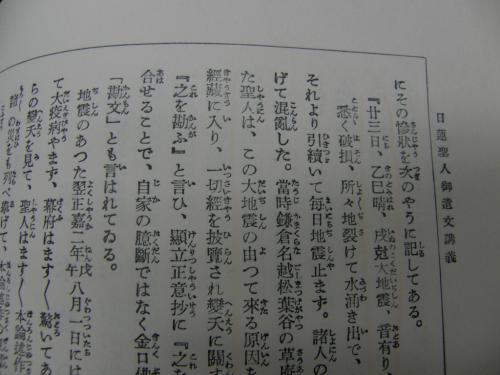 日蓮聖人御遺文講義
にその慘狀を次のやうに記してある。
『廿三日、乙巳晴、戌尅大地震、音有り、
悉く破損、所々地裂けて水涌き出で、
それより引續いて每日地震止まず。諸人の
げて混亂した。當時鎌倉名越松葉谷の草庵
た聖人は、この大地震の由つて來る原因
經藏に入り、一切經を披覽され變夭に關す
『之を勘ふ』と言ひ、顯立正意抄に『之を
合せることで、自家の臆斷ではなく金口佛
「勘文」とも言はれてゐる。
地震のあつた翌正嘉二年戊午八月一日には
て大疫病やまず、幕府はます〳〵驚いてあ
らの變夭を見て、聖人はます〳〵本論述作
諸の災をも列べ擧げて、